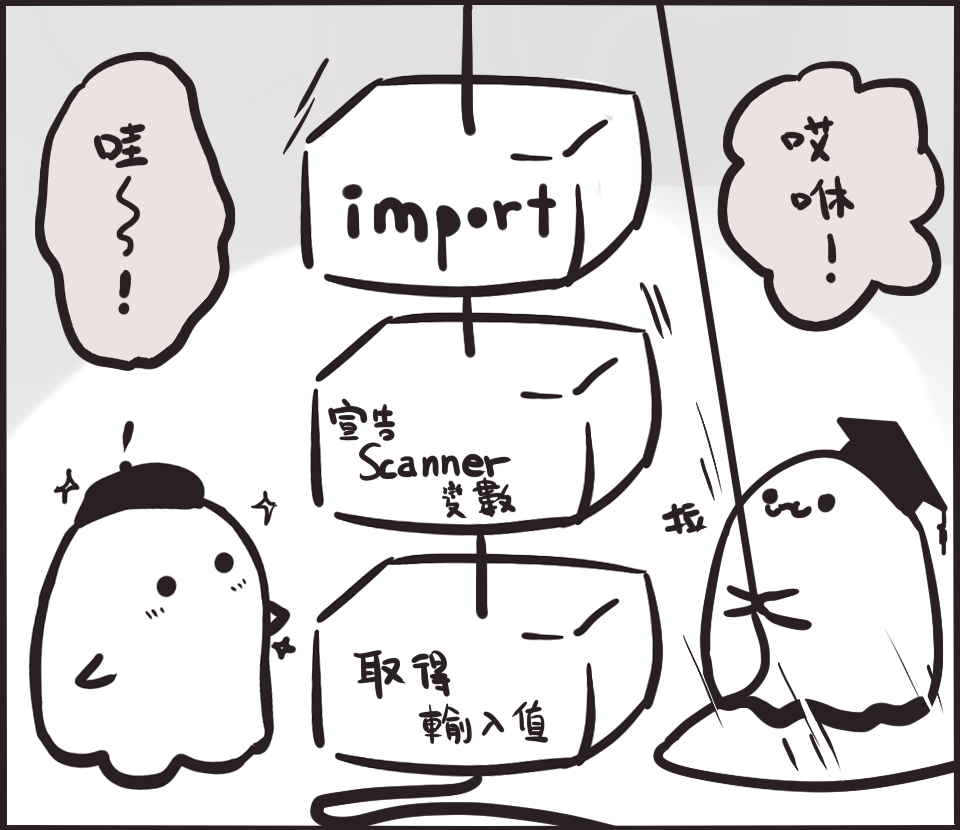 哇～！
import
宣告
Scanner
変數
取得
輸入值
哎咻！
拉